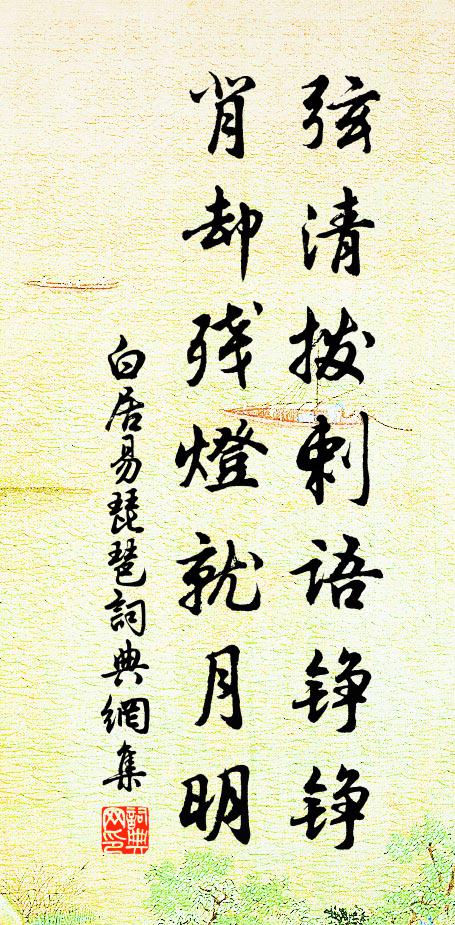 弦清拨剌语铮铮
背却残燈就月明
白居易琵琶詞典網集
詞典网印